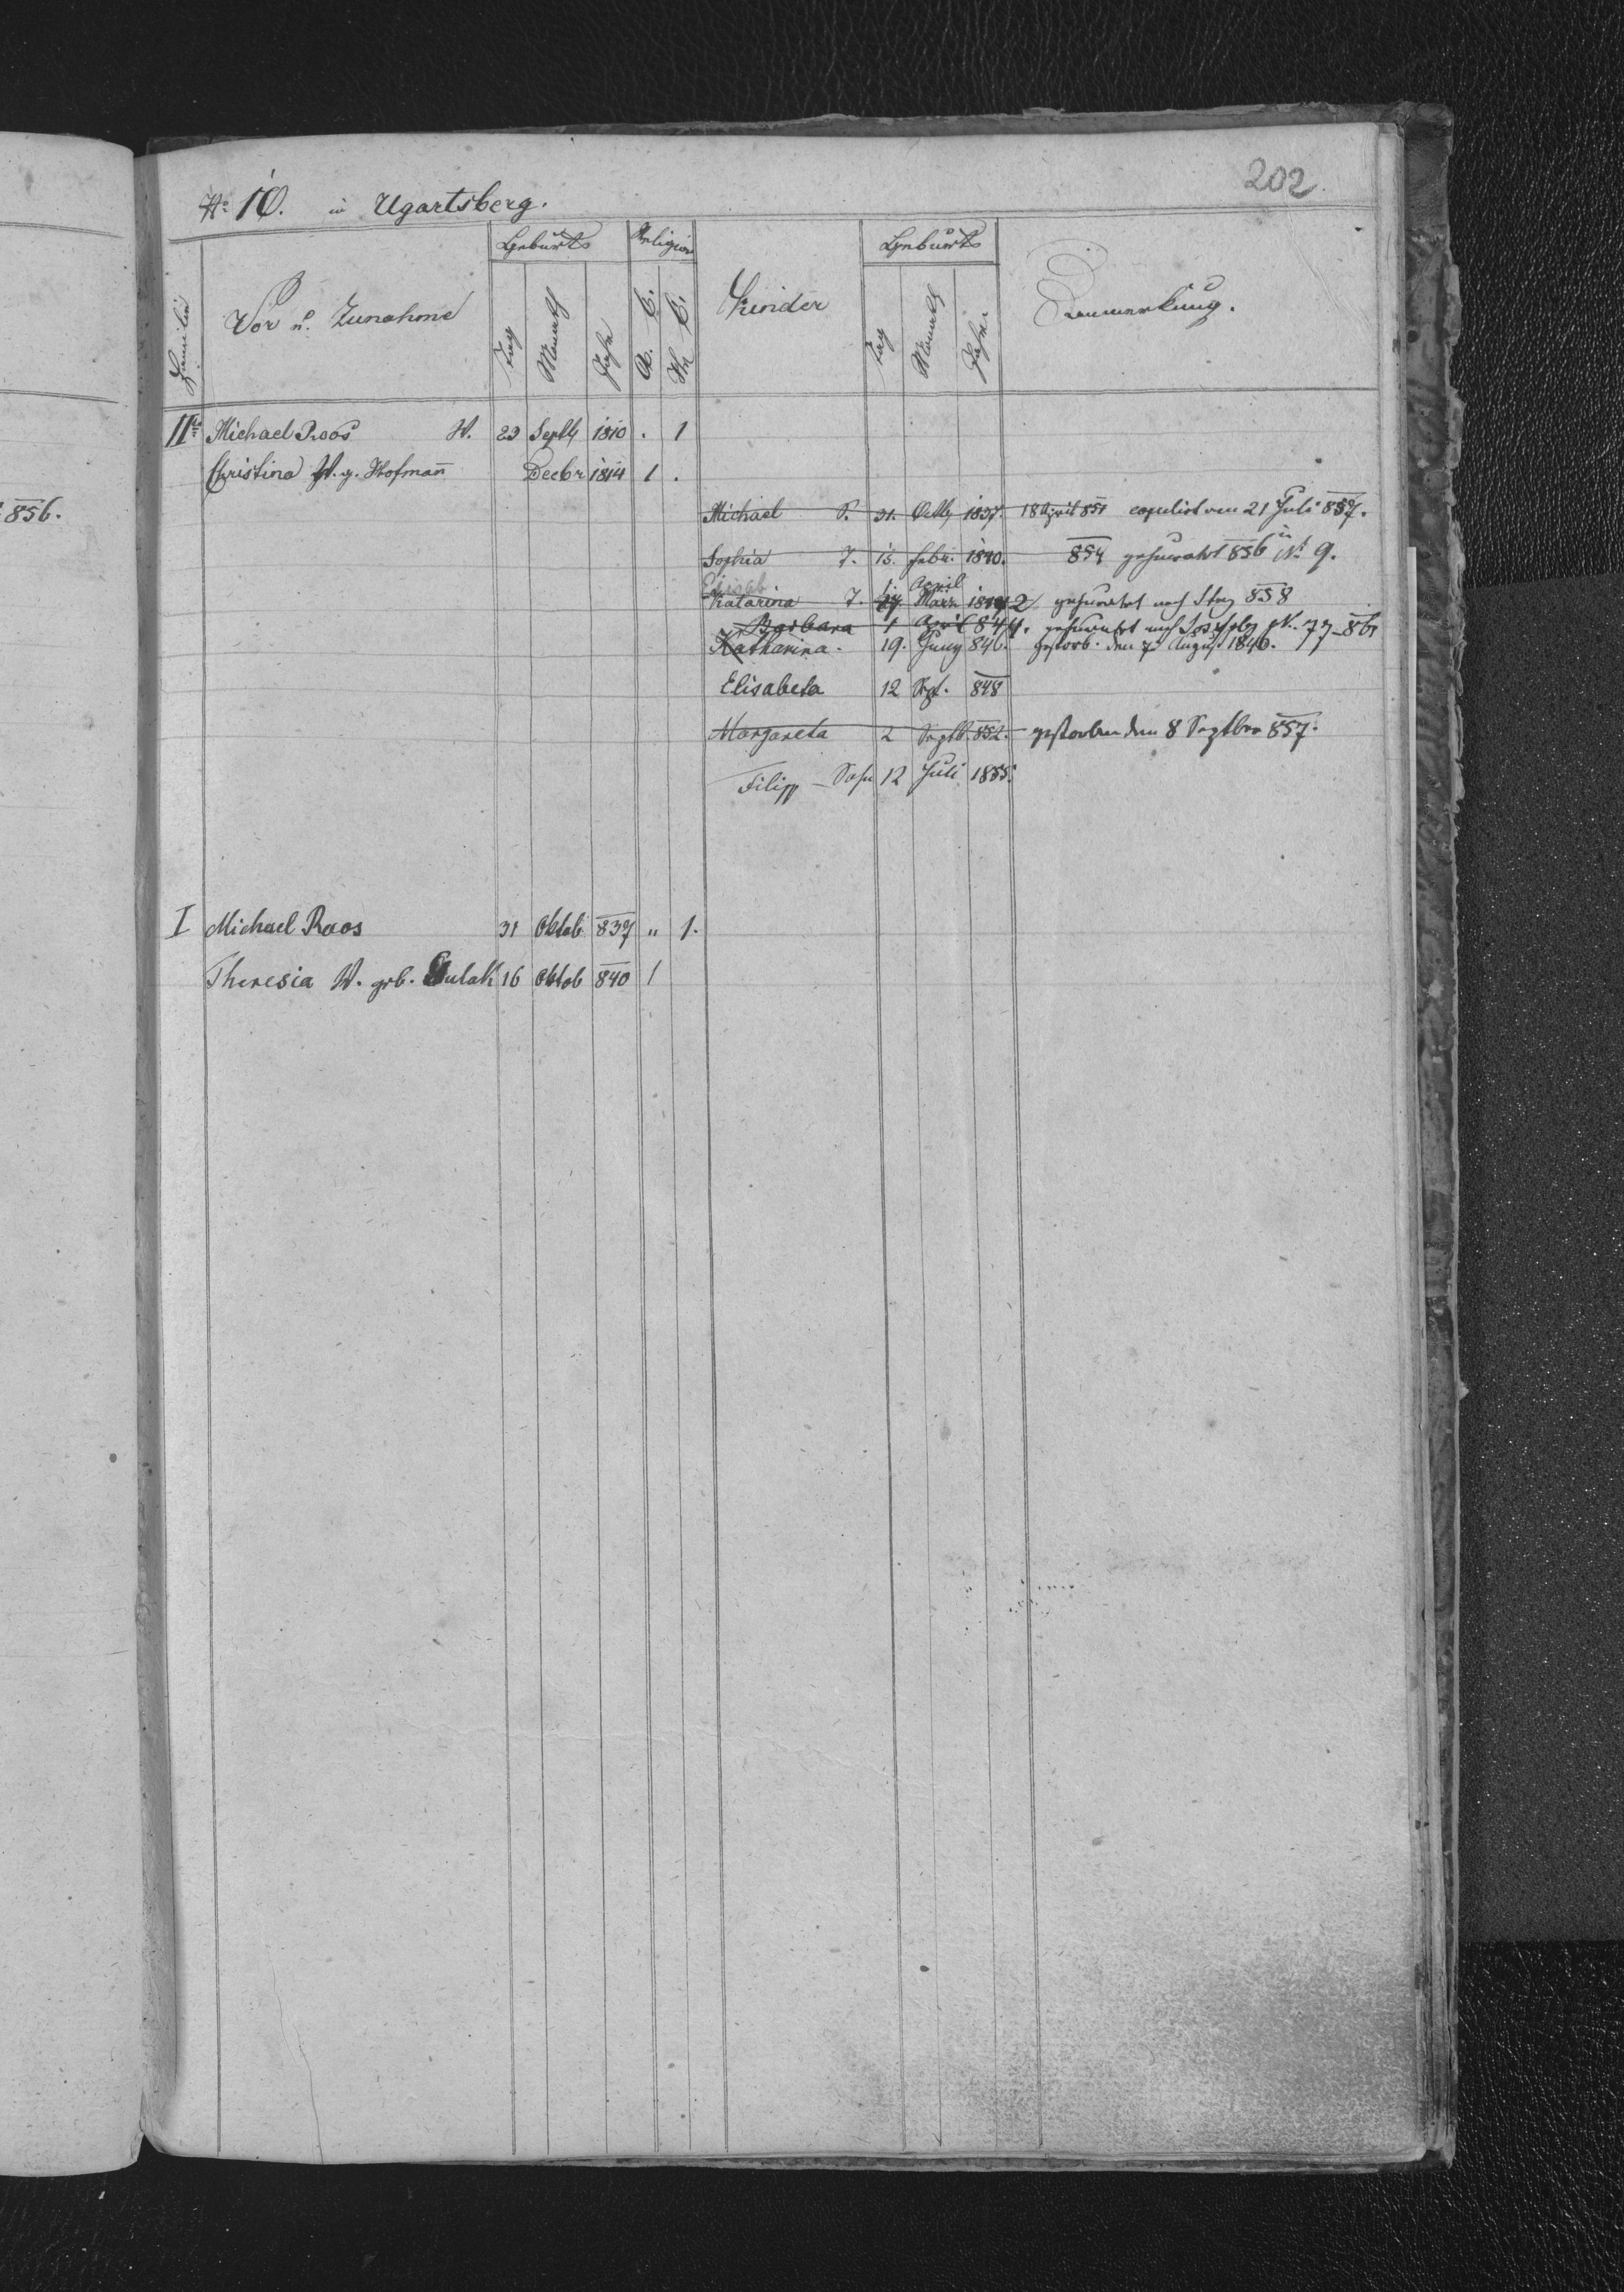 202.
No 10. in Ugartsberg.
Familie Vor u. Zunahme Geburts Tag Monath Jahr Religion A. C. H. C. Kinder Geburts Tag Monath Jahr Anmerkung.
856.
IIte Michael Roos W. 23 Septb 1810 . 1
Christina W. g. Hofmañ Decbr 1814 1 .
Michael S. 31. Octb 1837. 18 April 851 copulirt am 21 Juli 857.
Sophia T. 15. Febr. 1840. 854 geheuraht 856 in No 9.
Elisab 1. April
Katarina T. März 2 geheurahtet nach Stry 858
Barbara 1 April 844. geheurahtet nach N. 77
Katharina. 19. Juny 846. gestorb. den 7 August 1846.
Elisabeta 12 Sept. 848
Margareta 2 Septb. 852. gestorben den 8 Septber 857.
Filipp – Sohn 12 Juli 1855.
I Michael Roos 31 Oktob 837 " 1.
Theresia W. geb. 16 Oktob 840 1